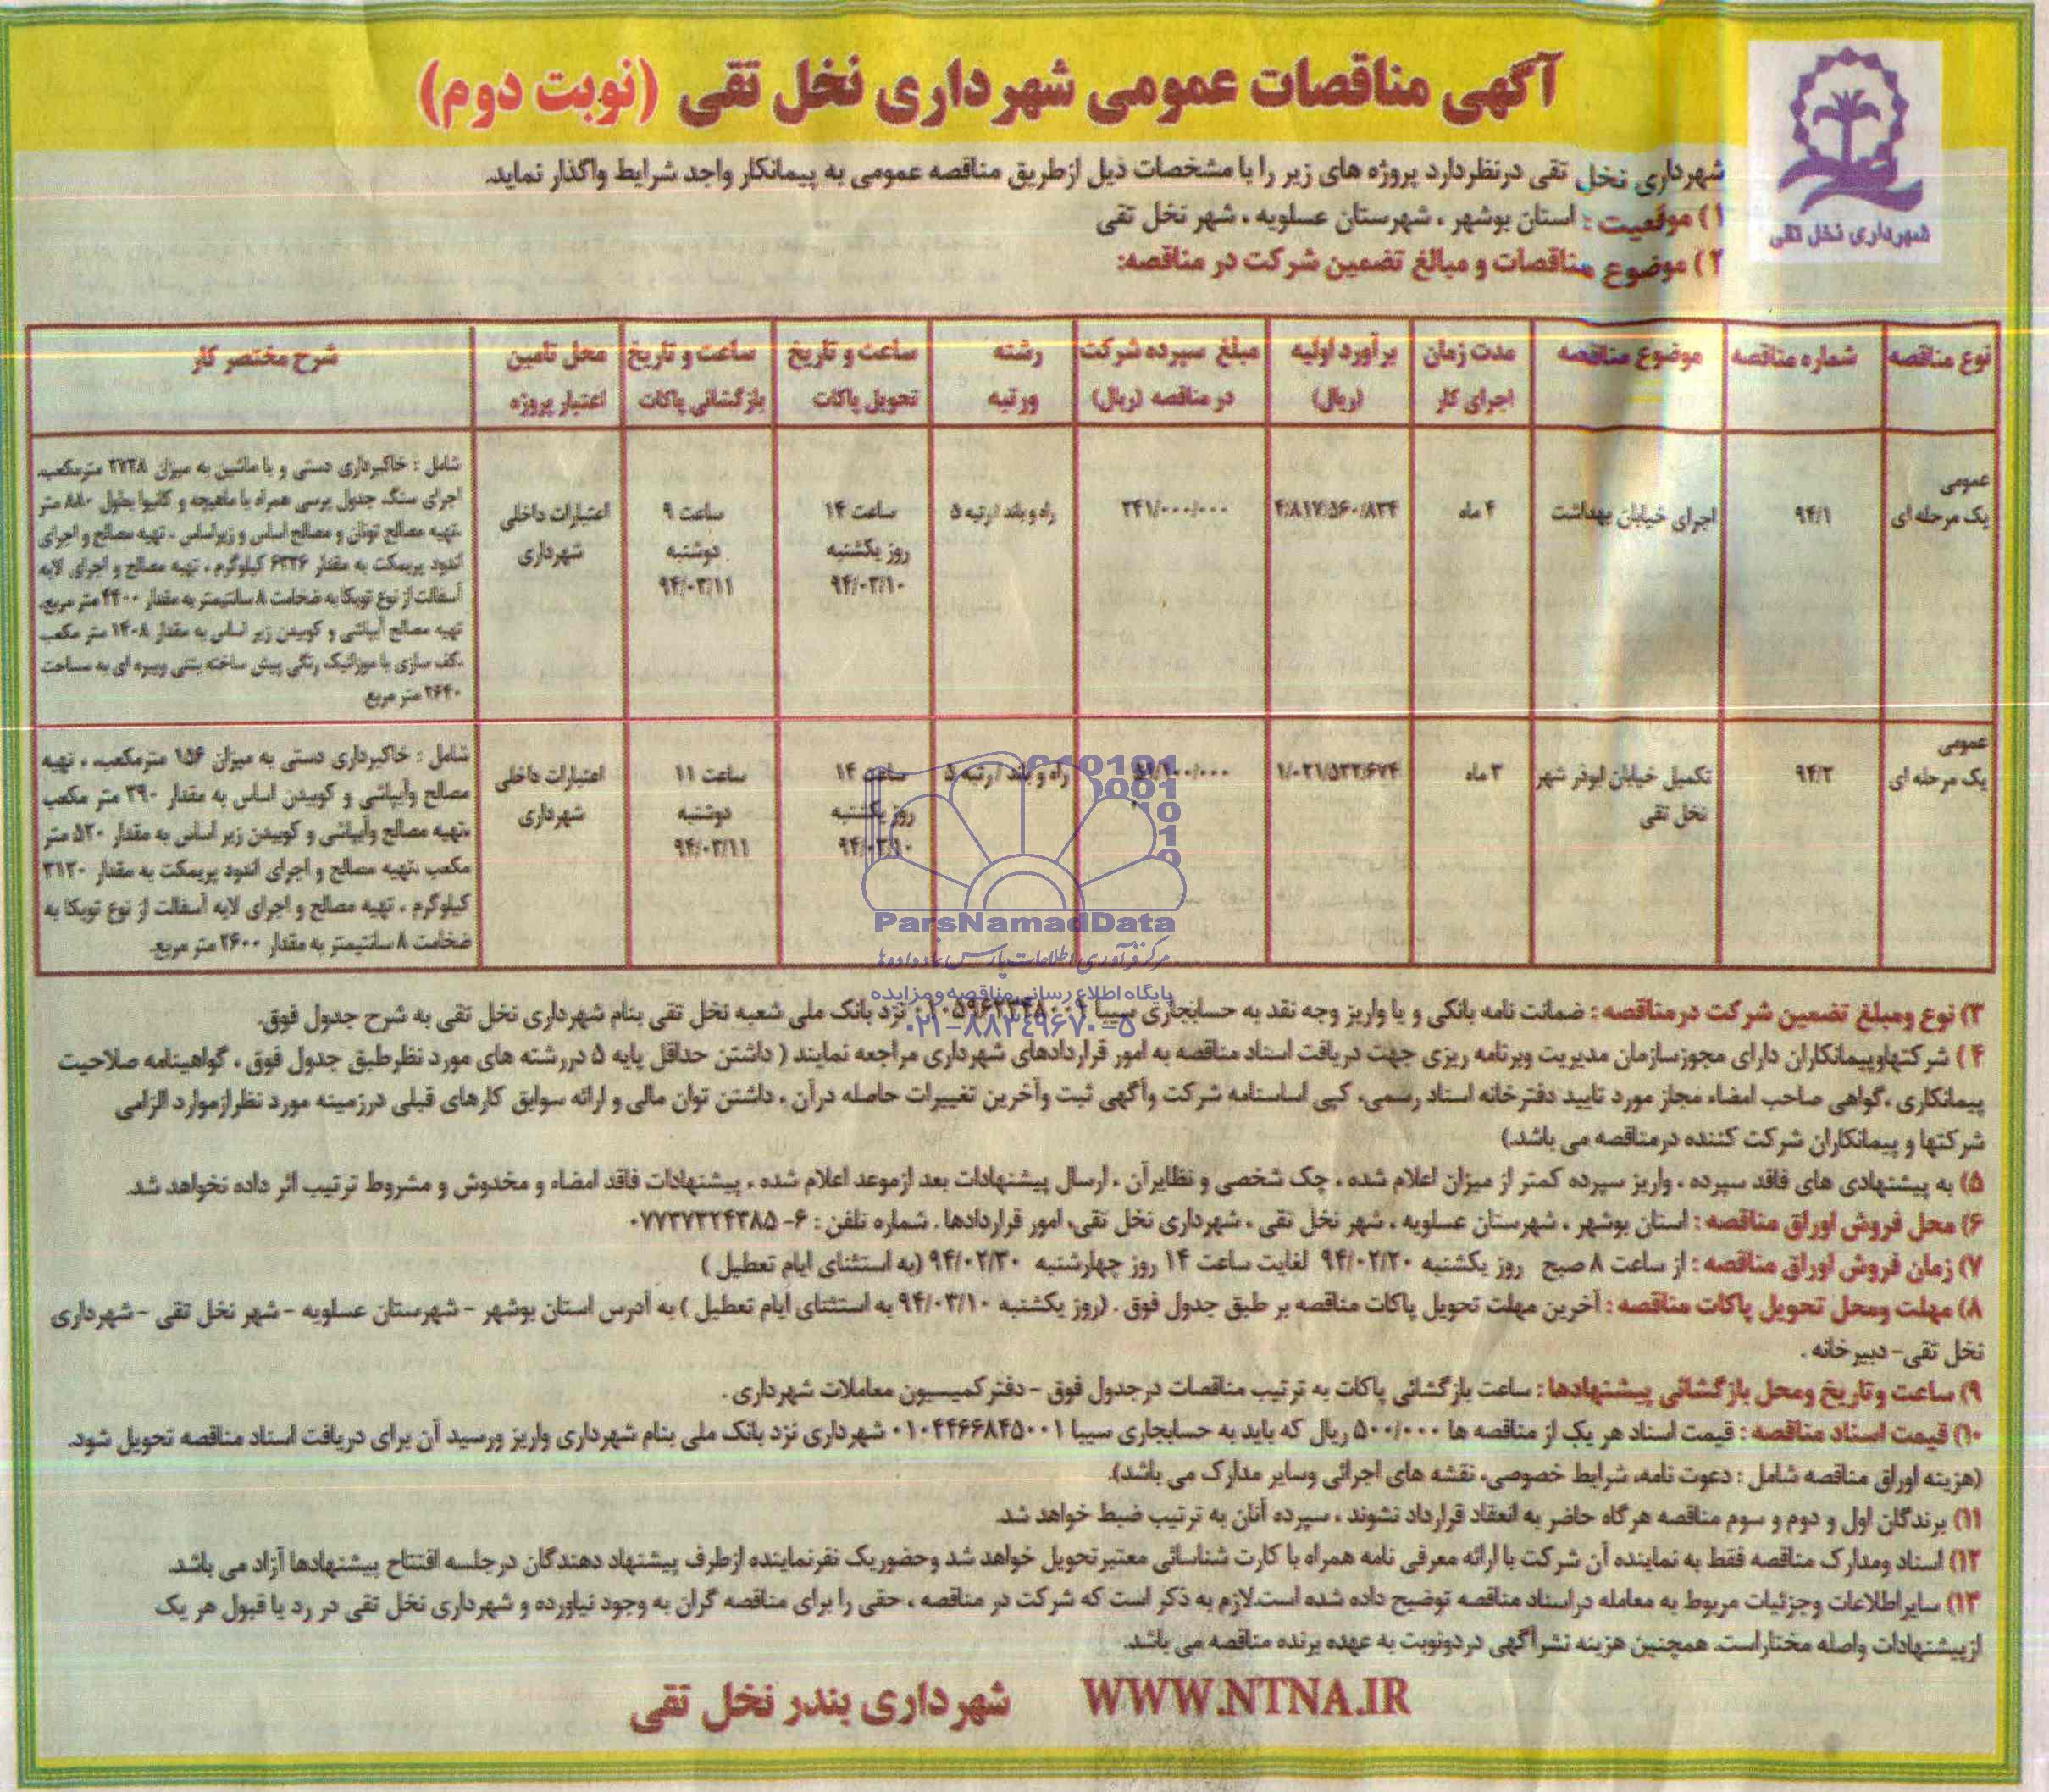 آگهی مناقصات عمومی شهرداری نخل تقی (نوبت دوم)
شهرداری نخل تقی
شهرداری نخل تقی درنظردارد پروژه های زیر را با مشخصات ذیل ازطریق مناقصه عمومی به پیمانکار واجد شرایط واگذار نماید.
۱) موقعیت : استان بوشهر ، شهرستان عسلویه ، شهر نخل تقی
۲) موضوع مناقصات و مبالغ تضمین شرکت در مناقصه:
نوع مناقصه
شماره مناقصه
موضوع مناقصه
مدت زمان
اجرای کار
برآورد اولیه
(ریال)
مبلغ سپرده شرکت
در مناقصه (ریال)
رشته
ورتبه
ساعت و تاریخ
تحویل پاکات
ساعت و تاریخ
بازگشائی پاکات
محل تامین
اعتبار پروژه
شرح مختصر کار
عمومی
یک مرحله ای
۹۴/۱
اجرای خیابان بهداشت
۴ ماه
۴/۸۱۷/۵۶۰/۸۳۴
۲۴۱/۰۰۰/۰۰۰
راه و باند / رتبه ۵
ساعت ۱۴
روز یکشنبه
۹۴/۰۳/۱۰
ساعت ۹
دوشنبه
۹۴/۰۳/۱۱
اعتبارات داخلی
شهرداری
شامل : خاکبرداری دستی و با ماشین به میزان ۲۷۲۸ مترمکعب،
اجرای سنگ جدول پرسی همراه با ماهیچه و کانیوا بطول ۸۸۰ متر
،تهیه مصالح تونان و مصالح اساس و زیراساس ، تهیه مصالح و اجرای
اندود پریمکت به مقدار ۶۳۳۶ کیلوگرم ، تهیه مصالح و اجرای لایه
آسفالت از نوع توپکا به ضخامت ۸ سانتیمتر به مقدار ۴۴۰۰ متر مربع،
تهیه مصالح آبپاشی و کوبیدن زیر اساس به مقدار ۱۴۰۸ متر مکعب
،کف سازی با موزائیک رنگی پیش ساخته بتنی ویبره ای به مساحت
۲۶۴۰ متر مربع
عمومی
یک مرحله ای
۹۴/۲
تکمیل خیابان ابوذر شهر
نخل تقی
۳ ماه
۱/۰۲۱/۵۳۳/۶۷۴
۵۱/۱۰۰/۰۰۰
راه و باند / رتبه ۵
ساعت ۱۴
روز یکشنبه
۹۴/۰۳/۱۰
ساعت ۱۱
دوشنبه
۹۴/۰۳/۱۱
اعتبارات داخلی
شهرداری
شامل : خاکبرداری دستی به میزان ۱۵۶ مترمکعب ، تهیه
مصالح وآبپاشی و کوبیدن اساس به مقدار ۳۹۰ متر مکعب
،تهیه مصالح وآبپاشی و کوبیدن زیر اساس به مقدار ۵۲۰ متر
مکعب ،تهیه مصالح و اجرای اندود پریمکت به مقدار ۳۱۲۰
کیلوگرم ، تهیه مصالح و اجرای لایه آسفالت از نوع توپکا به
ضخامت ۸ سانتیمتر به مقدار ۲۶۰۰ متر مربع.
ParsNamadData
مرکز فرآوری اطلاعات پارس نماد داده ها
پایگاه اطلاع رسانی مناقصه و مزایده
۰۲۱-۸۸۳۴۹۶۷۰-۵
۳) نوع ومبلغ تضمین شرکت درمناقصه : ضمانت نامه بانکی و یا واریز وجه نقد به حسابجاری سیبا نزد بانک ملی شعبه نخل تقی بنام شهرداری نخل تقی به شرح جدول فوق.
۴) شرکتهاوپیمانکاران دارای مجوزسازمان مدیریت وبرنامه ریزی جهت دریافت اسناد مناقصه به امور قراردادهای شهرداری مراجعه نمایند ( داشتن حداقل پایه ۵ دررشته های مورد نظرطبق جدول فوق ، گواهینامه صلاحیت
پیمانکاری ،گواهی صاحب امضاء مجاز مورد تایید دفترخانه اسناد رسمی، کپی اساسنامه شرکت وآگهی ثبت وآخرین تغییرات حاصله درآن ، داشتن توان مالی و ارائه سوابق کارهای قبلی درزمینه مورد نظرازموارد الزامی
شرکتها و پیمانکاران شرکت کننده درمناقصه می باشد.)
۵) به پیشنهادی های فاقد سپرده ، واریز سپرده کمتر از میزان اعلام شده ، چک شخصی و نظایرآن ، ارسال پیشنهادات بعد ازموعد اعلام شده ، پیشنهادات فاقد امضاء و مخدوش و مشروط ترتیب اثر داده نخواهد شد.
۶) محل فروش اوراق مناقصه : استان بوشهر ، شهرستان عسلویه ، شهر نخل تقی ، شهرداری نخل تقی، امور قراردادها . شماره تلفن : ۶- ۰۷۷۳۷۳۲۴۳۸۵
۷) زمان فروش اوراق مناقصه : از ساعت ۸ صبح روز یکشنبه ۹۴/۰۲/۲۰ لغایت ساعت ۱۴ روز چهارشنبه ۹۴/۰۲/۳۰ (به استثنای ایام تعطیل )
۸) مهلت ومحل تحویل پاکات مناقصه : آخرین مهلت تحویل پاکات مناقصه بر طبق جدول فوق . (روز یکشنبه ۹۴/۰۳/۱۰ به استثنای ایام تعطیل ) به آدرس استان بوشهر - شهرستان عسلویه - شهر نخل تقی - شهرداری
نخل تقی - دبیرخانه .
۹) ساعت وتاریخ ومحل بازگشائی پیشنهادها : ساعت بازگشائی پاکات به ترتیب مناقصات درجدول فوق - دفترکمیسیون معاملات شهرداری .
۱۰) قیمت اسناد مناقصه : قیمت اسناد هر یک از مناقصه ها ۵۰۰/۰۰۰ ریال که باید به حسابجاری سیبا ۰۱۰۴۴۶۶۸۴۵۰۰۱ شهرداری نزد بانک ملی بنام شهرداری واریز ورسید آن برای دریافت اسناد مناقصه تحویل شود.
(هزینه اوراق مناقصه شامل : دعوت نامه، شرایط خصوصی، نقشه های اجرائی وسایر مدارک می باشد).
۱۱) برندگان اول و دوم و سوم مناقصه هرگاه حاضر به انعقاد قرارداد نشوند ، سپرده آنان به ترتیب ضبط خواهد شد.
۱۲) اسناد ومدارک مناقصه فقط به نماینده آن شرکت با ارائه معرفی نامه همراه با کارت شناسائی معتبرتحویل خواهد شد وحضوریک نفرنماینده ازطرف پیشنهاد دهندگان درجلسه افتتاح پیشنهادها آزاد می باشد.
۱۳) سایراطلاعات وجزئیات مربوط به معامله دراسناد مناقصه توضیح داده شده است.لازم به ذکر است که شرکت در مناقصه ، حقی را برای مناقصه گران به وجود نیاورده و شهرداری نخل تقی در رد یا قبول هر یک
ازپیشنهادات واصله مختاراست. همچنین هزینه نشرآگهی دردونوبت به عهده برنده مناقصه می باشد.
WWW.NTNA.IR شهرداری بندر نخل تقی